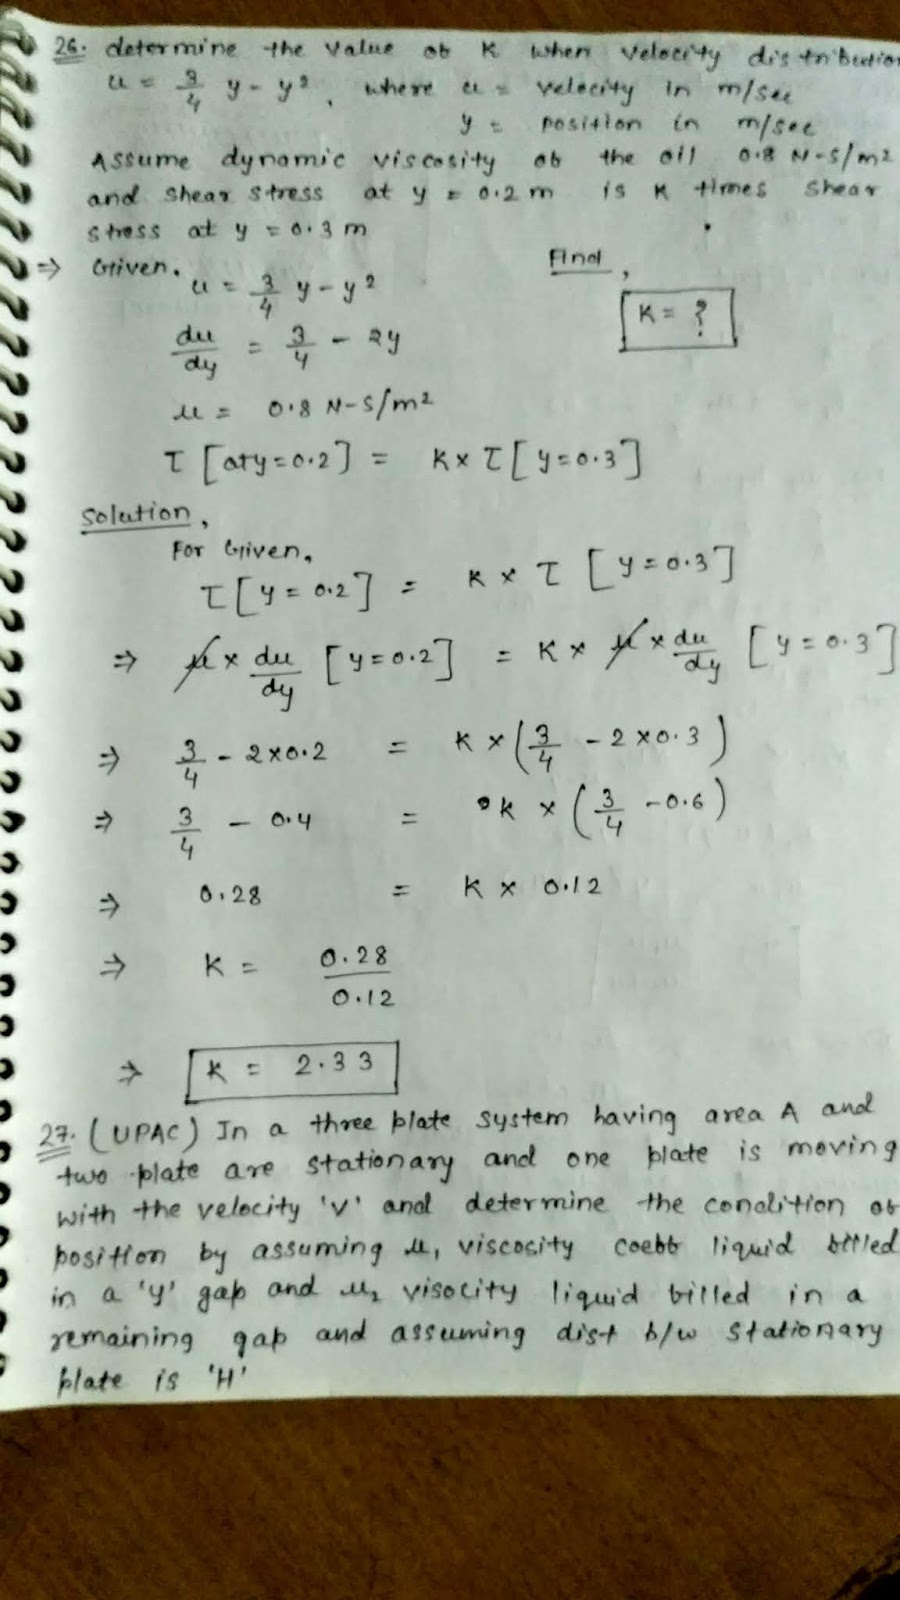 26. determine the value of K when velocity distribution
u = 3/4 y - y², where u = velocity in m/sec
y = position in m/sec
Assume dynamic viscosity of the oil 0.8 N-S/m²
and shear stress at y = 0.2 m is K times shear
stress at y = 0.3 m
⇒ Given, Find,
u = 3/4 y - y²
K = ?
du/dy = 3/4 - 2y
μ = 0.8 N-S/m²
τ [at y=0.2] = K × τ [y=0.3]
Solution,
For Given,
τ [y = 0.2] = K × τ [y = 0.3]
⇒ μ × du/dy [y=0.2] = K × μ × du/dy [y = 0.3]
⇒ 3/4 - 2×0.2 = K × (3/4 - 2×0.3)
⇒ 3/4 - 0.4 = K × (3/4 - 0.6)
⇒ 0.28 = K × 0.12
⇒ K = 0.28/0.12
⇒ K = 2.33
27. (UPAC) In a three plate system having area A and
two plate are stationary and one plate is moving
with the velocity 'V' and determine the condition of
position by assuming μ₁ viscosity coeff liquid filled
in a 'y' gap and μ₂ visocity liquid filled in a
remaining gap and assuming dist b/w stationary
plate is 'H'